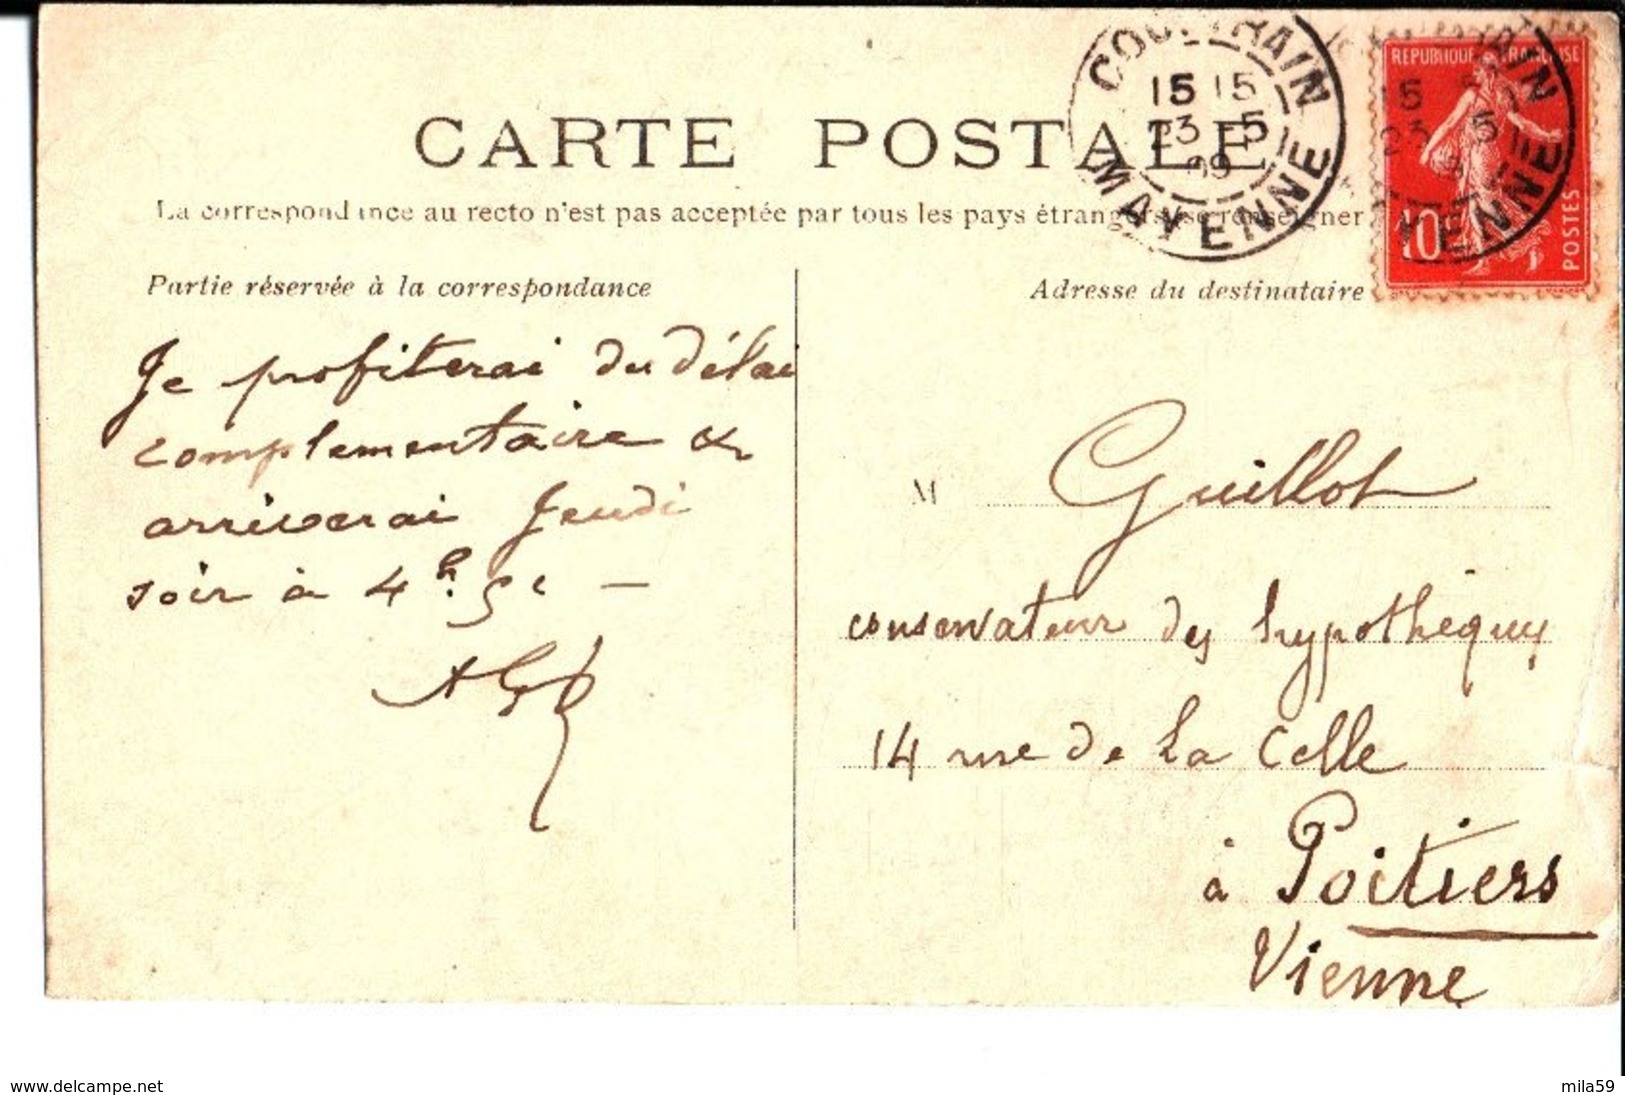 COUPTRAIN
15 15
23 -5
09
MAYENNE
REPUBLIQUE FRANÇAISE
10
POSTES
CARTE POSTALE
La correspondance au recto n'est pas acceptée par tous les pays étrangers, se renseigner
Partie réservée à la correspondance
Adresse du destinataire
Je profiterai du délai
complementaire &
arriverai Jeudi
soir à 4h
M Guillot
conservateur des hypothèques
14 rue de la Celle
à Poitiers
Vienne
www.delcampe.net
mila59